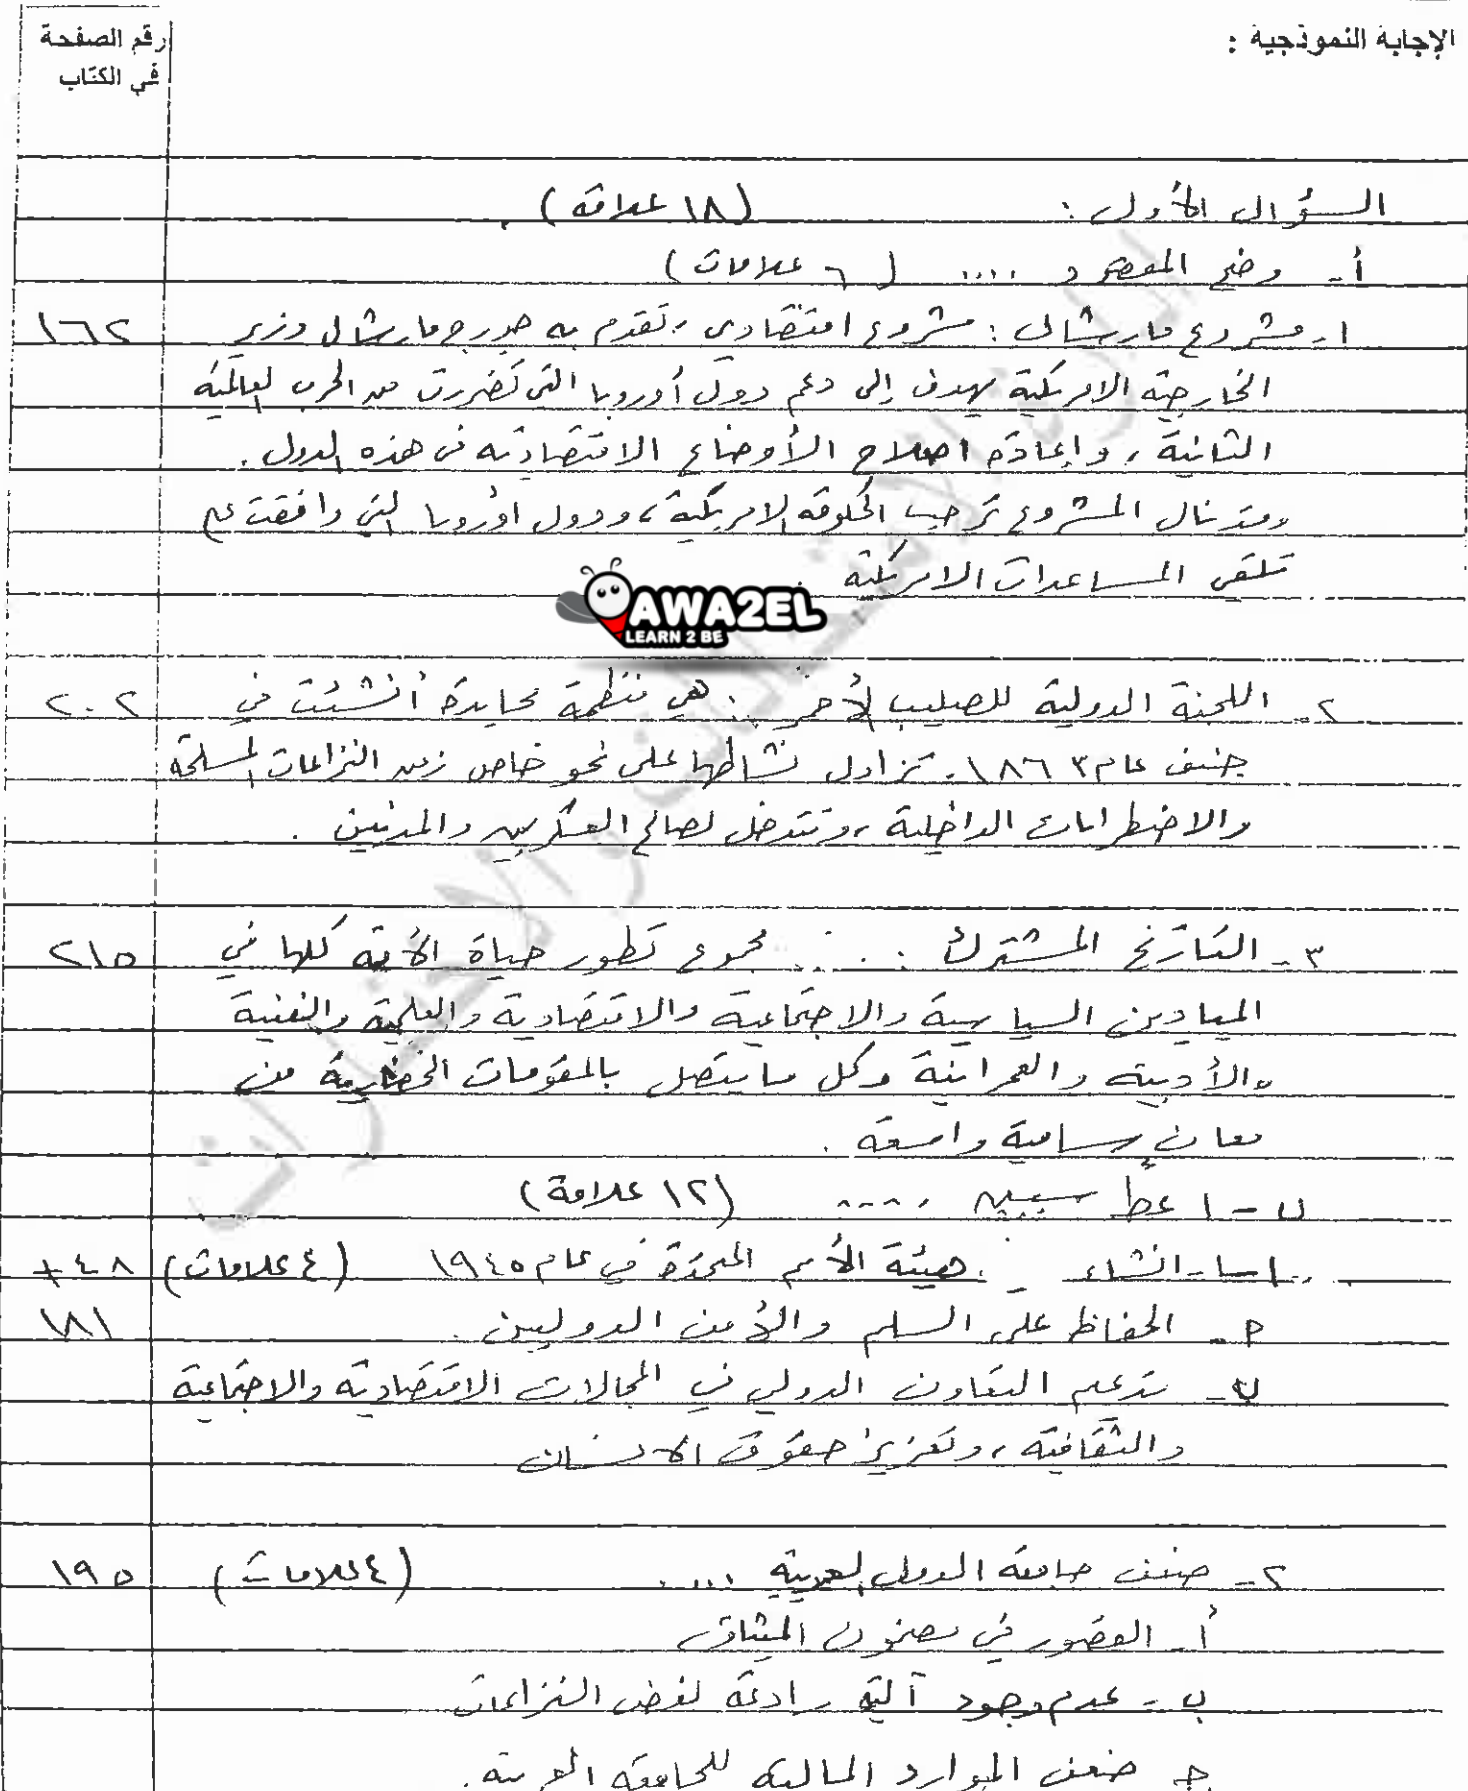 الإجابة النموذجية :
رقم الصفحة
في الكتاب
السؤال الأول : (١٨ علامة)
أ- وضح المقصود .... (٦ علامات)
١- مشروع مارشال : مشروع اقتصادي، تقدم به جورج مارشال وزير ١٦٢
الخارجية الامريكية يهدف إلى دعم دول أوروبا التي تضررت من الحرب العالمية
الثانية ، وإعادة اصلاح الأوضاع الاقتصادية في هذه الدول .
وقد نال المشروع ترحيب الحكومة الامريكية ، ودول أوروبا التي وافقت على
تلقي المساعدات الامريكية .
AWA2EL
LEARN 2 BE
٢- اللجنة الدولية للصليب الأحمر : هي منظمة محايدة أنشئت في ٢٠٢
جنيف عام ١٨٦٣ . تزاول نشاطها على نحو خاص زمن النزاعات المسلحة
والاضطرابات الداخلية ، وتتدخل لصالح العسكريين والمدنيين .
٣- التاريخ المشترك : مجموع تطور حياة الأمة كلها في ٢١٥
الميادين السياسية والاجتماعية والاقتصادية والعلمية والفنية
والأدبية والعمرانية وكل ما يتصل بالمقومات الحضارية من
معانٍ سامية واسعة .
ب - اعط سببين .... (١٢ علامة)
١- انشاء هيئة الأمم المتحدة في عام ١٩٤٥ (٤ علامات) ٤٨ +
١٨١
م- الحفاظ على السلم والأمن الدوليين .
ب- تدعيم التعاون الدولي في المجالات الاقتصادية والاجتماعية
والثقافية ، وتعزيز حقوق الانسان
٢- ضعف جامعة الدول العربية .... (٤ علامات) ١٩٥
أ- القصور في مضمون الميثاق
ب- عدم وجود آلية رادعة لفض النزاعات
ج- ضعف الموارد المالية للجامعة العربية .